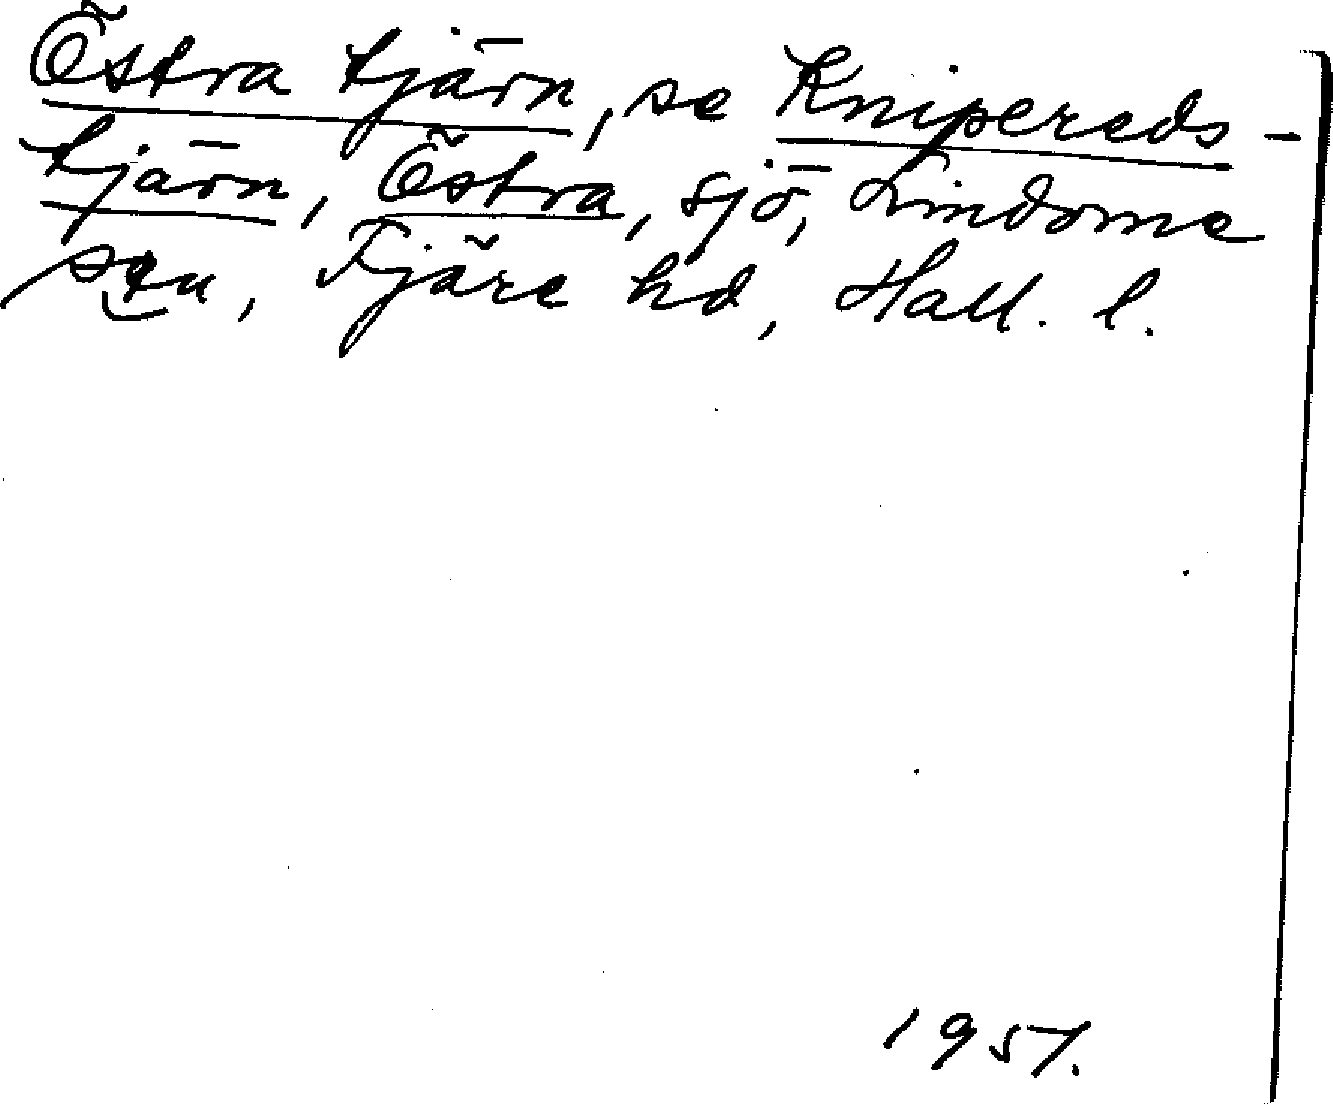 Östra tjärn, se Knipereds-
tjärn, Östra, sjö, Lindome
sn, Fjäre hd, Hall. l.
1951.